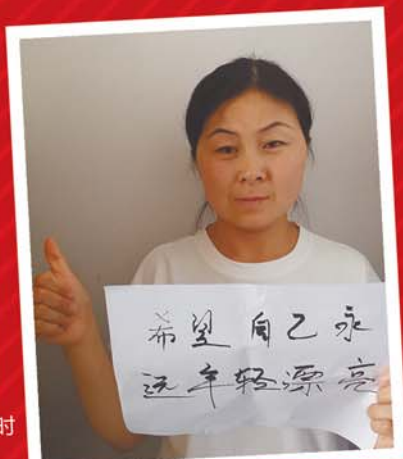 希望自己永
远年轻漂亮
时